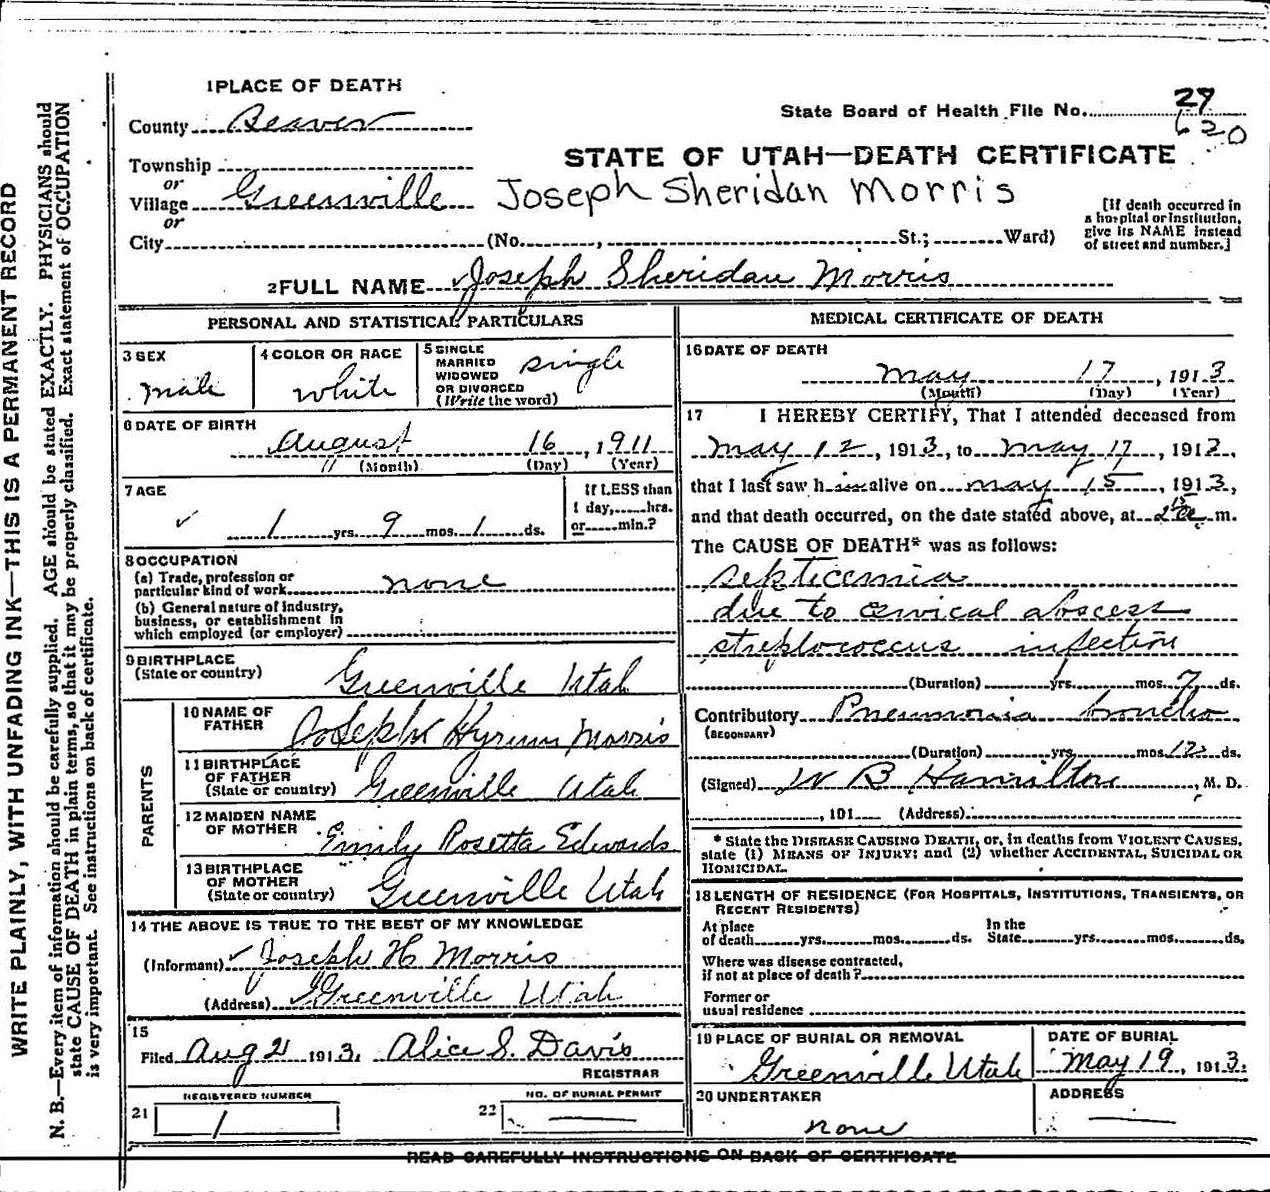 WRITE PLAINLY, WITH UNFADING INK—THIS IS A PERMANENT RECORD
N. B.—Every item of information should be carefully supplied. AGE should be stated EXACTLY. PHYSICIANS should
state CAUSE OF DEATH in plain terms, so that it may be properly classified. Exact statement of OCCUPATION
is very important. See instructions on back of certificate.
1 PLACE OF DEATH
County Beaver
State Board of Health File No. 29
620
Township
or
Village Greenville
or
City
STATE OF UTAH—DEATH CERTIFICATE
Joseph Sheridan Morris
[If death occurred in
a hospital or institution,
give its NAME instead
of street and number.]
(No. , St.; Ward)
2 FULL NAME Joseph Sheridan Morris
PERSONAL AND STATISTICAL PARTICULARS
3 SEX
male
4 COLOR OR RACE
white
5 SINGLE
MARRIED
WIDOWED
OR DIVORCED
(Write the word)
single
6 DATE OF BIRTH
August 16, 1911
(Month) (Day) (Year)
7 AGE
1 yrs. 9 mos. 1 ds.
If LESS than
1 day, hrs.
or min.?
8 OCCUPATION
(a) Trade, profession or
particular kind of work none
(b) General nature of industry,
business, or establishment in
which employed (or employer)
9 BIRTHPLACE
(State or country)
Greenville Utah
PARENTS
10 NAME OF
FATHER
Joseph Hyrum Morris
11 BIRTHPLACE
OF FATHER
(State or country)
Greenville Utah
12 MAIDEN NAME
OF MOTHER
Emily Rosetta Edwards
13 BIRTHPLACE
OF MOTHER
(State or country)
Greenville Utah
14 THE ABOVE IS TRUE TO THE BEST OF MY KNOWLEDGE
(Informant) Joseph H Morris
(Address) Greenville Utah
15
Filed Aug 21 1913. Alice S. Davis
REGISTRAR
21 REGISTERED NUMBER
1
22 NO. OF BURIAL PERMIT
MEDICAL CERTIFICATE OF DEATH
16 DATE OF DEATH
May 17, 1913
(Month) (Day) (Year)
17 I HEREBY CERTIFY, That I attended deceased from
May 12, 1913, to May 17, 1913,
that I last saw him alive on May 15, 1913,
and that death occurred, on the date stated above, at m.
The CAUSE OF DEATH* was as follows:
septicemia
due to cervical abscess
streptococcus infection
(Duration) yrs. mos. 7 ds.
Contributory Pneumonia broncho
(SECONDARY)
(Duration) yrs. mos. 12 ds.
(Signed) W B Hamilton, M. D.
, 191 (Address)
* State the DISEASE CAUSING DEATH, or, in deaths from VIOLENT CAUSES,
state (1) MEANS OF INJURY; and (2) whether ACCIDENTAL, SUICIDAL OR
HOMICIDAL.
18 LENGTH OF RESIDENCE (FOR HOSPITALS, INSTITUTIONS, TRANSIENTS, OR
RECENT RESIDENTS)
At place
of death yrs. mos. ds.
In the
State yrs. mos. ds.
Where was disease contracted,
if not at place of death?
Former or
usual residence
19 PLACE OF BURIAL OR REMOVAL
Greenville Utah
DATE OF BURIAL
May 19, 1913.
20 UNDERTAKER
none
ADDRESS
READ CAREFULLY INSTRUCTIONS ON BACK OF CERTIFICATE